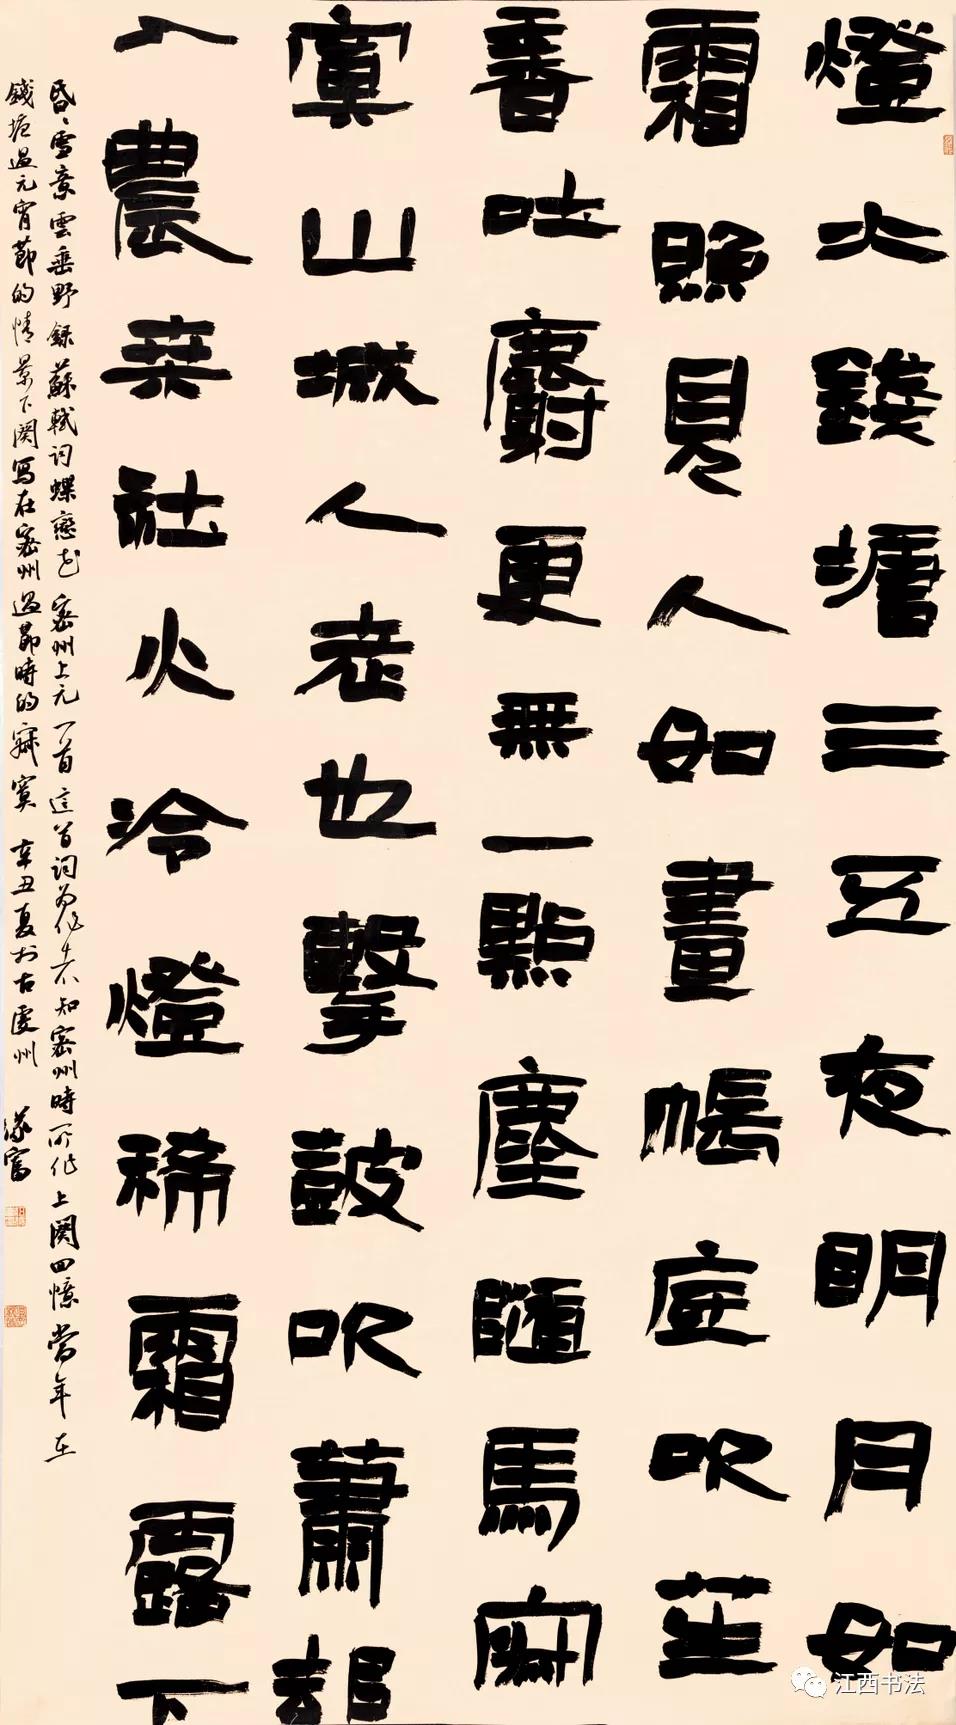 燈火錢塘三五夜明月如
霜照見人如畫帳底吹笙
香吐麝更無一點塵隨馬寂
寞山城人老也擊鼓吹簫却
入農桒社火冷燈稀霜露下
昏昏雪意雲垂野録蘇軾词蝶戀花密州上元一首這首词为作者知密州時所作上闋回憶當年在
錢塘過元宵節的情景下闋寫在密州過節時的寂寞 辛丑夏於古虔州 富
江西书法